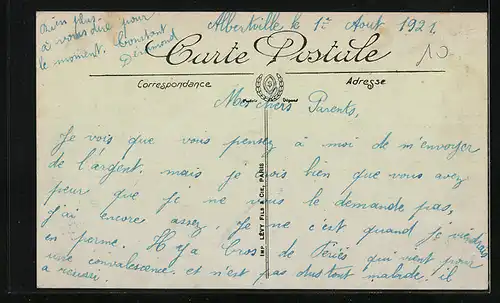 Rien plus
à vous dire pour
le moment. Constant
Albertville le 1er Aout 1921.
Carte Postale
Correspondance
Adresse
10
Mes chers Parents,
Je vois que vous pensez à moi de m'envoyer
de l'argent. mais je crois bien que vous avez
peur que je ne vous le demande pas,
j'ai encore assez. Je ne c'est quand je viendrais
en perme. Il y a Gros de qui vient pour
une convalescence. et n'est pas du tout malade. il
a réussi.
IMP. LÉVY FILS & CIE, PARIS